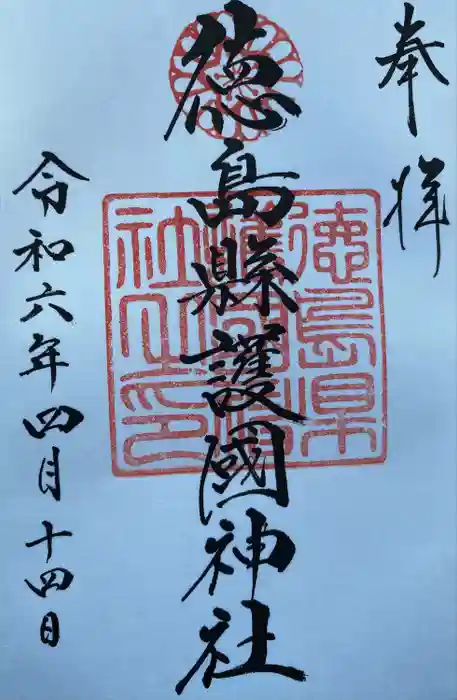 奉拝
徳島縣護國神社
徳島県
護國神
社之印
令和六年四月十四日